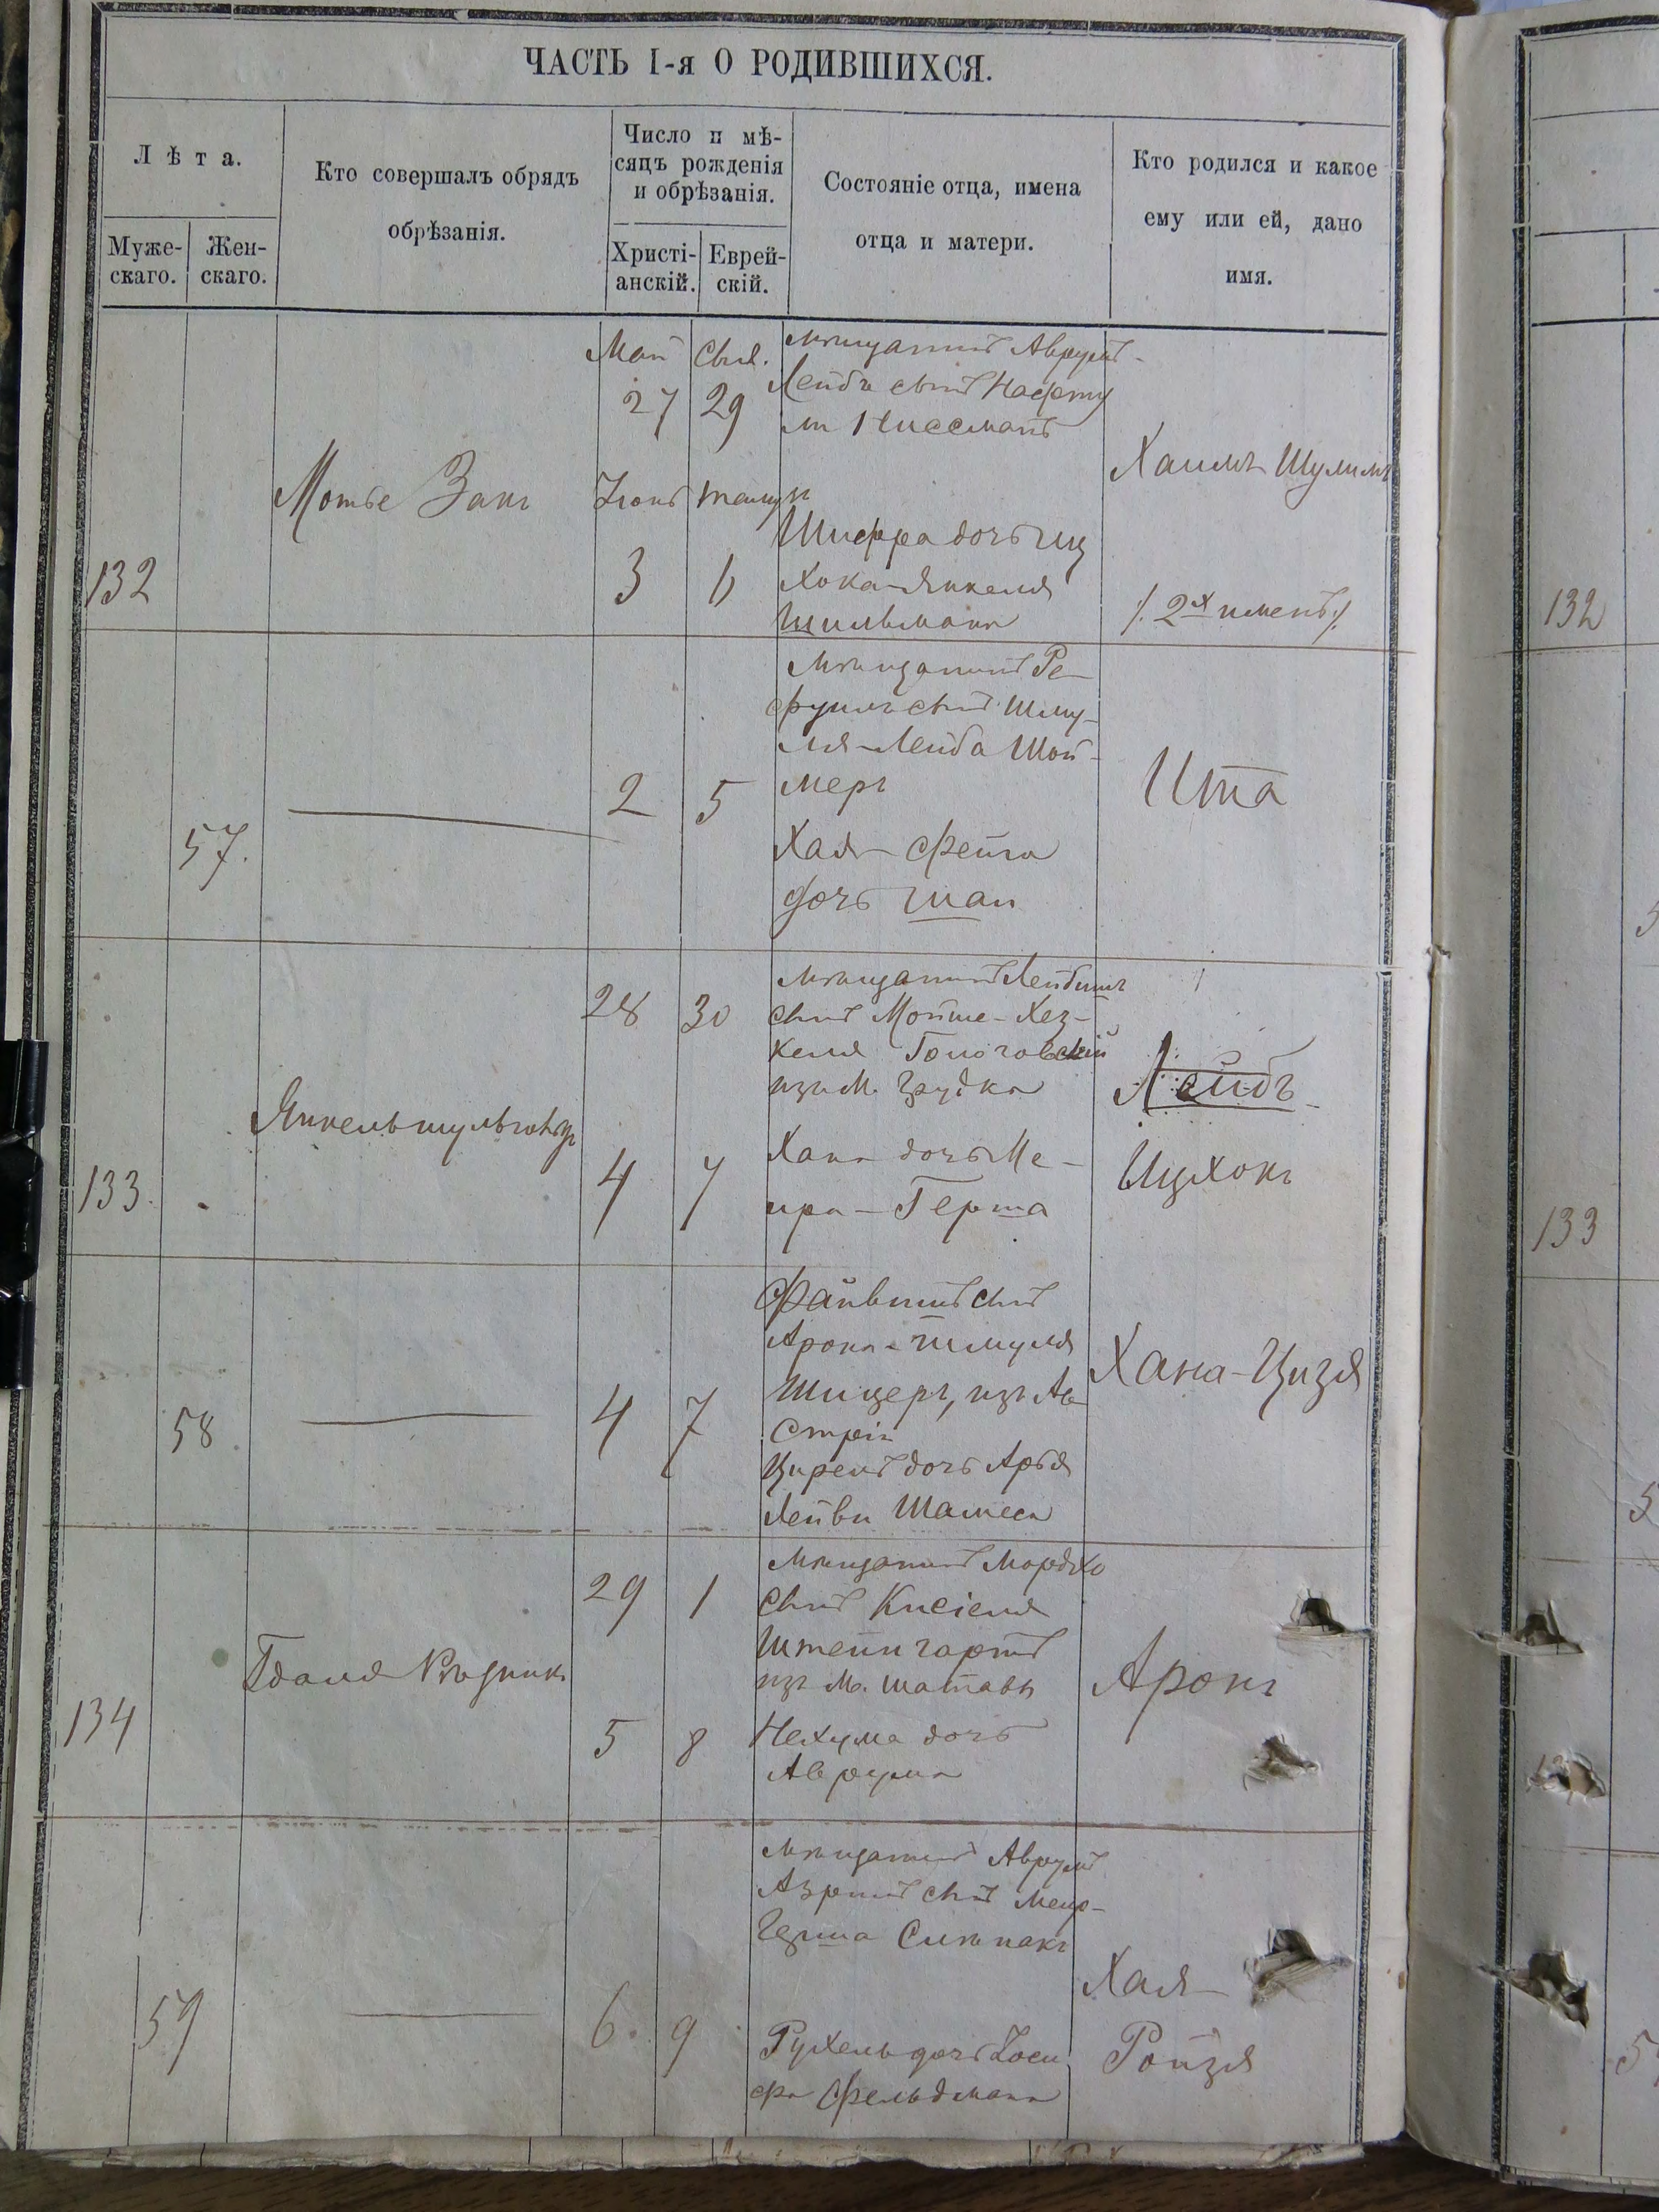 ЧАСТЬ I-я О РОДИВШИХСЯ.
Лѣта.
Муже-
скаго.
Жен-
скаго.
Кто совершалъ обрядъ
обрѣзанія.
Число и мѣ-
сяцъ рожденія
и обрѣзанія.
Христі-
анскій.
Еврей-
скій.
Состояніе отца, имена
отца и матери.
Кто родился и какое
ему или ей, дано
имя.
132
Мотье Закъ
Май
27
Іюнь
3
29
6
мѣщанинъ Аврумъ-
Лейбъ сынъ Нафту
ли Ниссманъ
Шифра дочь Иц
хока-Янкеля
Шильмана
Хаимъ Шулимъ
/: 2х именъ :/
57.
2
5
мѣщанинъ Ре-
фуилъ сынъ Шму-
ля-Лейба Шой-
меръ
Хая-Фейга
дочь
Ита
133
Янкель
28
4
30
7
мѣщанинъ
сынъ Мойше-Хез-
келя
изъ м. Грудка
Хана дочь Ме-
ира-Герша
Лейбъ-
Ицхокъ
58
4
7
Файвишъ сынъ
Арона-Шмуля
Шицеръ, изъ Ав
стріи
Циреля дочь Арья
Лейви Шамеса
Хана-Цизя
134
Гдаля
29
5
1
8
мѣщанинъ Мордхо
сынъ Кисіеля
Штейнгартъ
изъ м. Шатавы
Нехума дочь
Аврума
Аронъ
59
6
9
мѣщанинъ Аврумъ
Азріилъ сынъ Меир-
Герша Ситнакъ
Рухель дочь Іоси
фа Фельдмана
Хая-
Ройзя
132
133